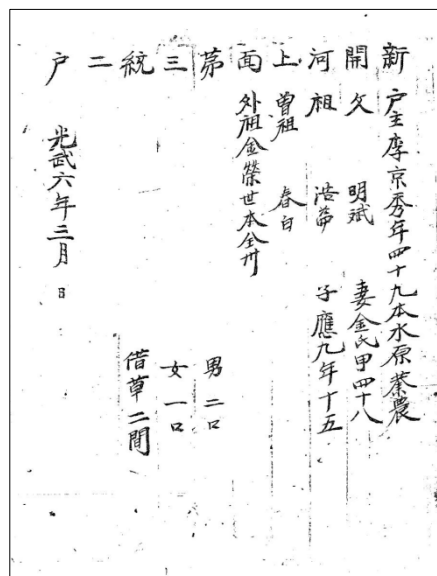 新開河上面第三統二户
户主李京秀年四十九本水原業農
父 明斌 妻金氏甲四十八
祖 浩 子應九年十五
曾祖 春白
外祖金榮世本全州
男二口
女一口
借草二間
光武六年三月 日